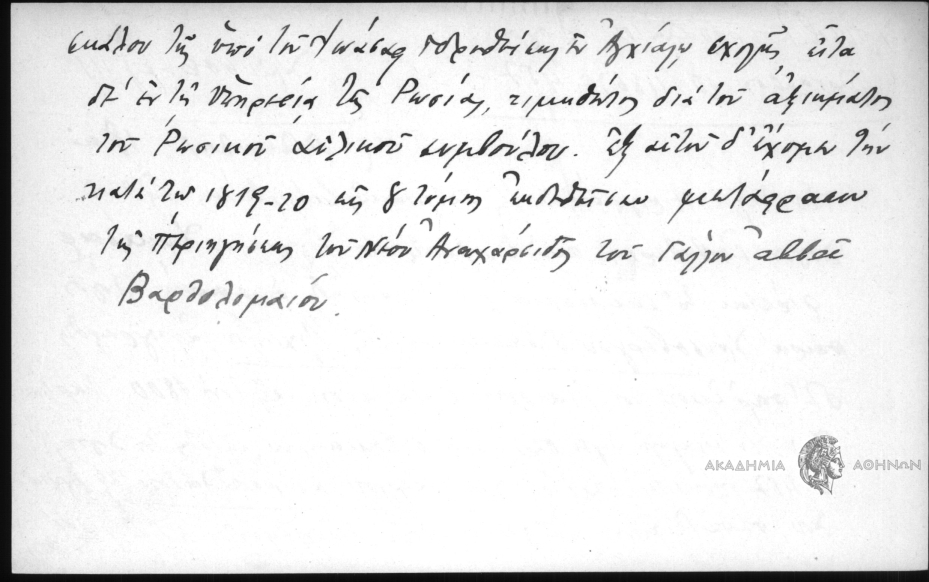 σκάλου τῆς ὑπό τοῦ ἱδρυθείσης ἐν Ἀγχιάλῳ σχολῆς, εἶτα
δέ ἐν τῇ ὑπηρεσίᾳ τῆς Ρωσίας, τιμηθέντος διά τοῦ ἀξιώματος
τοῦ Ρωσικοῦ αὐλικοῦ συμβούλου. Ἐξ αὐτοῦ δ' ἔχομεν τήν
κατά τό 1819-20 εἰς τόμους ἐκδοθεῖσαν μετάφρασιν
τῆς Περιηγήσεως τοῦ Νέου Ἀναχάρσιδος τοῦ Γάλλου abbé
Βαρθολομαίου.
ΑΚΑΔΗΜΙΑ ΑΘΗΝΩΝ